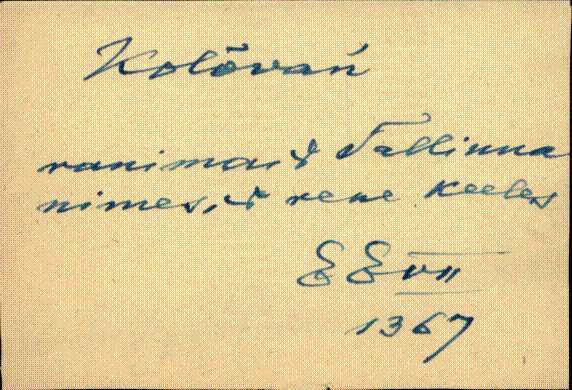 Kolõvań
vanimaid Tallinna
nimesid vene keeles
EE VII
1367